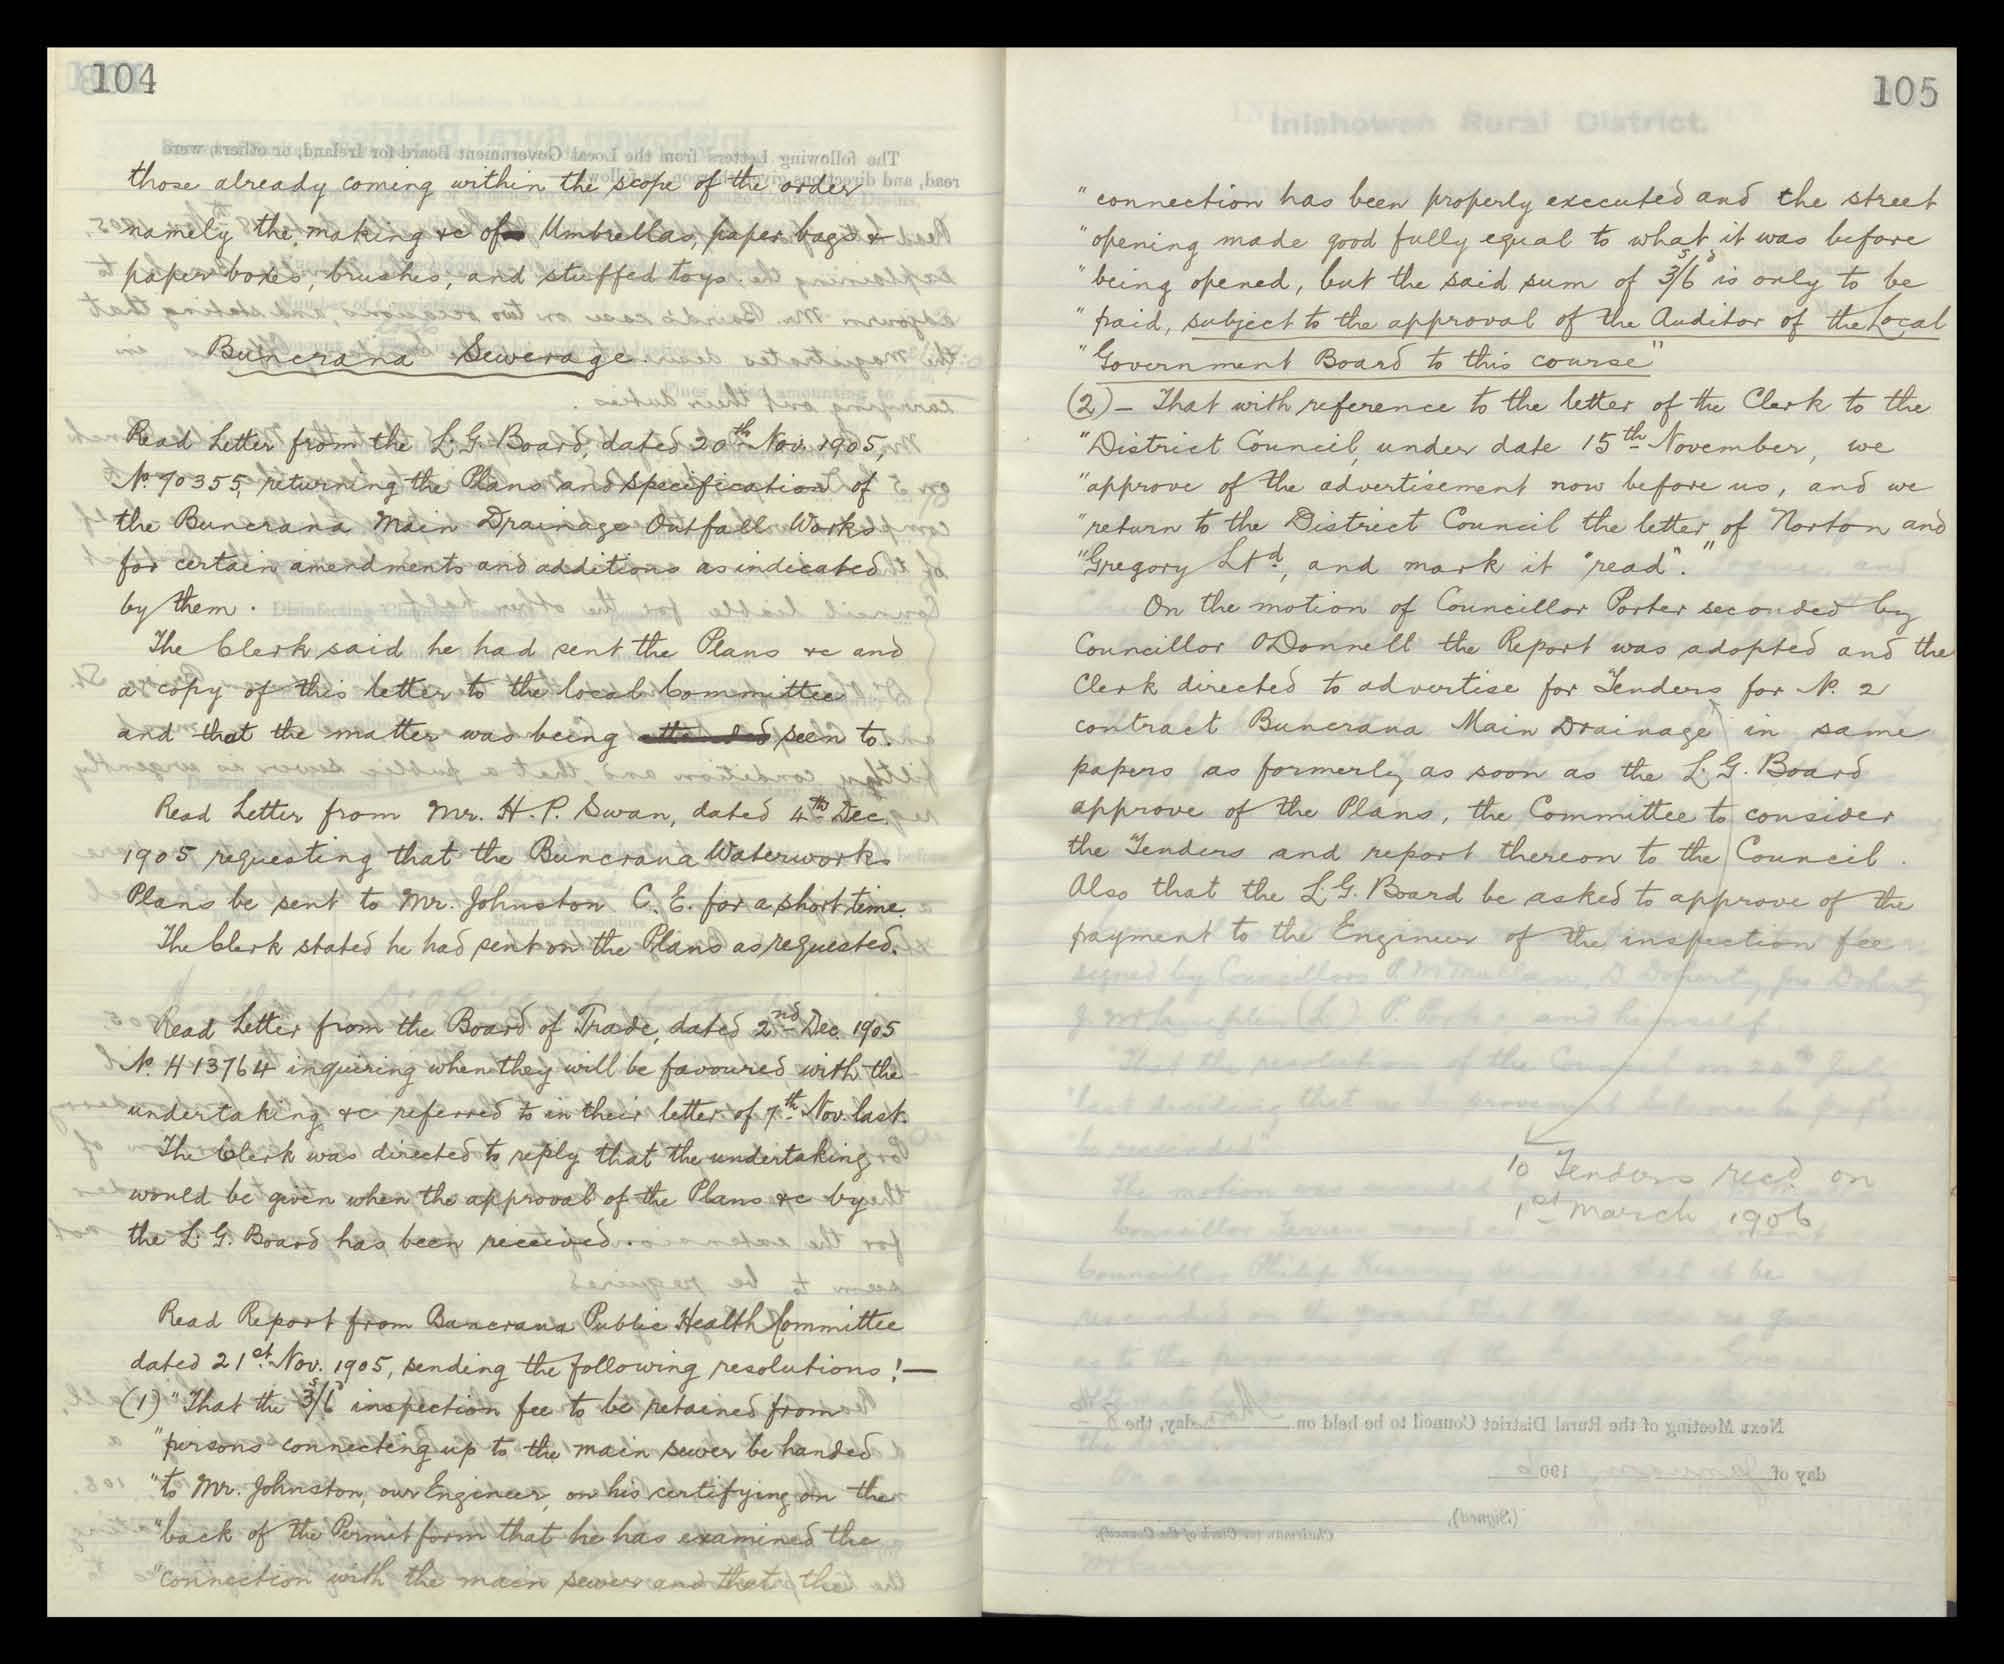 104
those already coming within the scope of the order
namely the making &c of Umbrellas, paper bags &
paper boxes, brushes, and stuffed toys.
Buncrana Sewerage
Read Letter from the L. G. Board, dated 20th Nov. 1905,
No. 70355, returning the Plans and specification of
the Buncrana Main Drainage Outfall Works
for certain amendments and additions as indicated
by them.
The Clerk said he had sent the Plans &c and
a copy of this letter to the local Committee
and that the matter was being attended seen to.
Read Letter from Mr. H. P. Swan, dated 4th Dec.
1905 requesting that the Buncrana Waterworks
Plans be sent to Mr. Johnston C. E. for a short time.
The Clerk stated he had sent on the Plans as requested.
Read Letter from the Board of Trade, dated 2nd Dec. 1905
No. H 13764 inquiring when they will be favoured with the
undertaking &c referred to in their letter of 7th Nov. last.
The Clerk was directed to reply that the undertaking
would be given when the approval of the Plans &c by
the L. G. Board has been received.
Read Report from Buncrana Public Health Committee
dated 21st Nov. 1905, sending the following resolutions :—
(1) "That the 3s/6d inspection fee to be retained from
"persons connecting up to the main sewer be handed
"to Mr. Johnston, our Engineer, on his certifying on the
"back of the Permit form that he has examined the
"connection with the main sewer and that the
105
Inishowen Rural District.
"connection has been properly executed and the street
"opening made good fully equal to what it was before
"being opened, but the said sum of 3s/6d is only to be
"paid, subject to the approval of the Auditor of the Local
"Government Board to this course"
(2) — That with reference to the letter of the Clerk to the
"District Council, under date 15th November, we
"approve of the advertisement now before us, and we
"return to the District Council the letter of Norton and
"Gregory Ltd., and mark it "read"."
On the motion of Councillor Porter seconded by
Councillor O'Donnell the Report was adopted and the
Clerk directed to advertise for Tenders for No. 2
contract Buncrana Main Drainage in same
papers as formerly as soon as the L. G. Board
approve of the Plans, the Committee to consider
the Tenders and report thereon to the Council.
Also that the L. G. Board be asked to approve of the
payment to the Engineer of the inspection fee
10 Tenders recd. on
1st March 1906